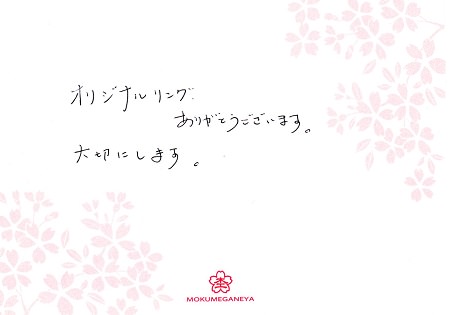 オリジナルリング
ありがとうございます。
大切にします。
MOKUMEGANEYA